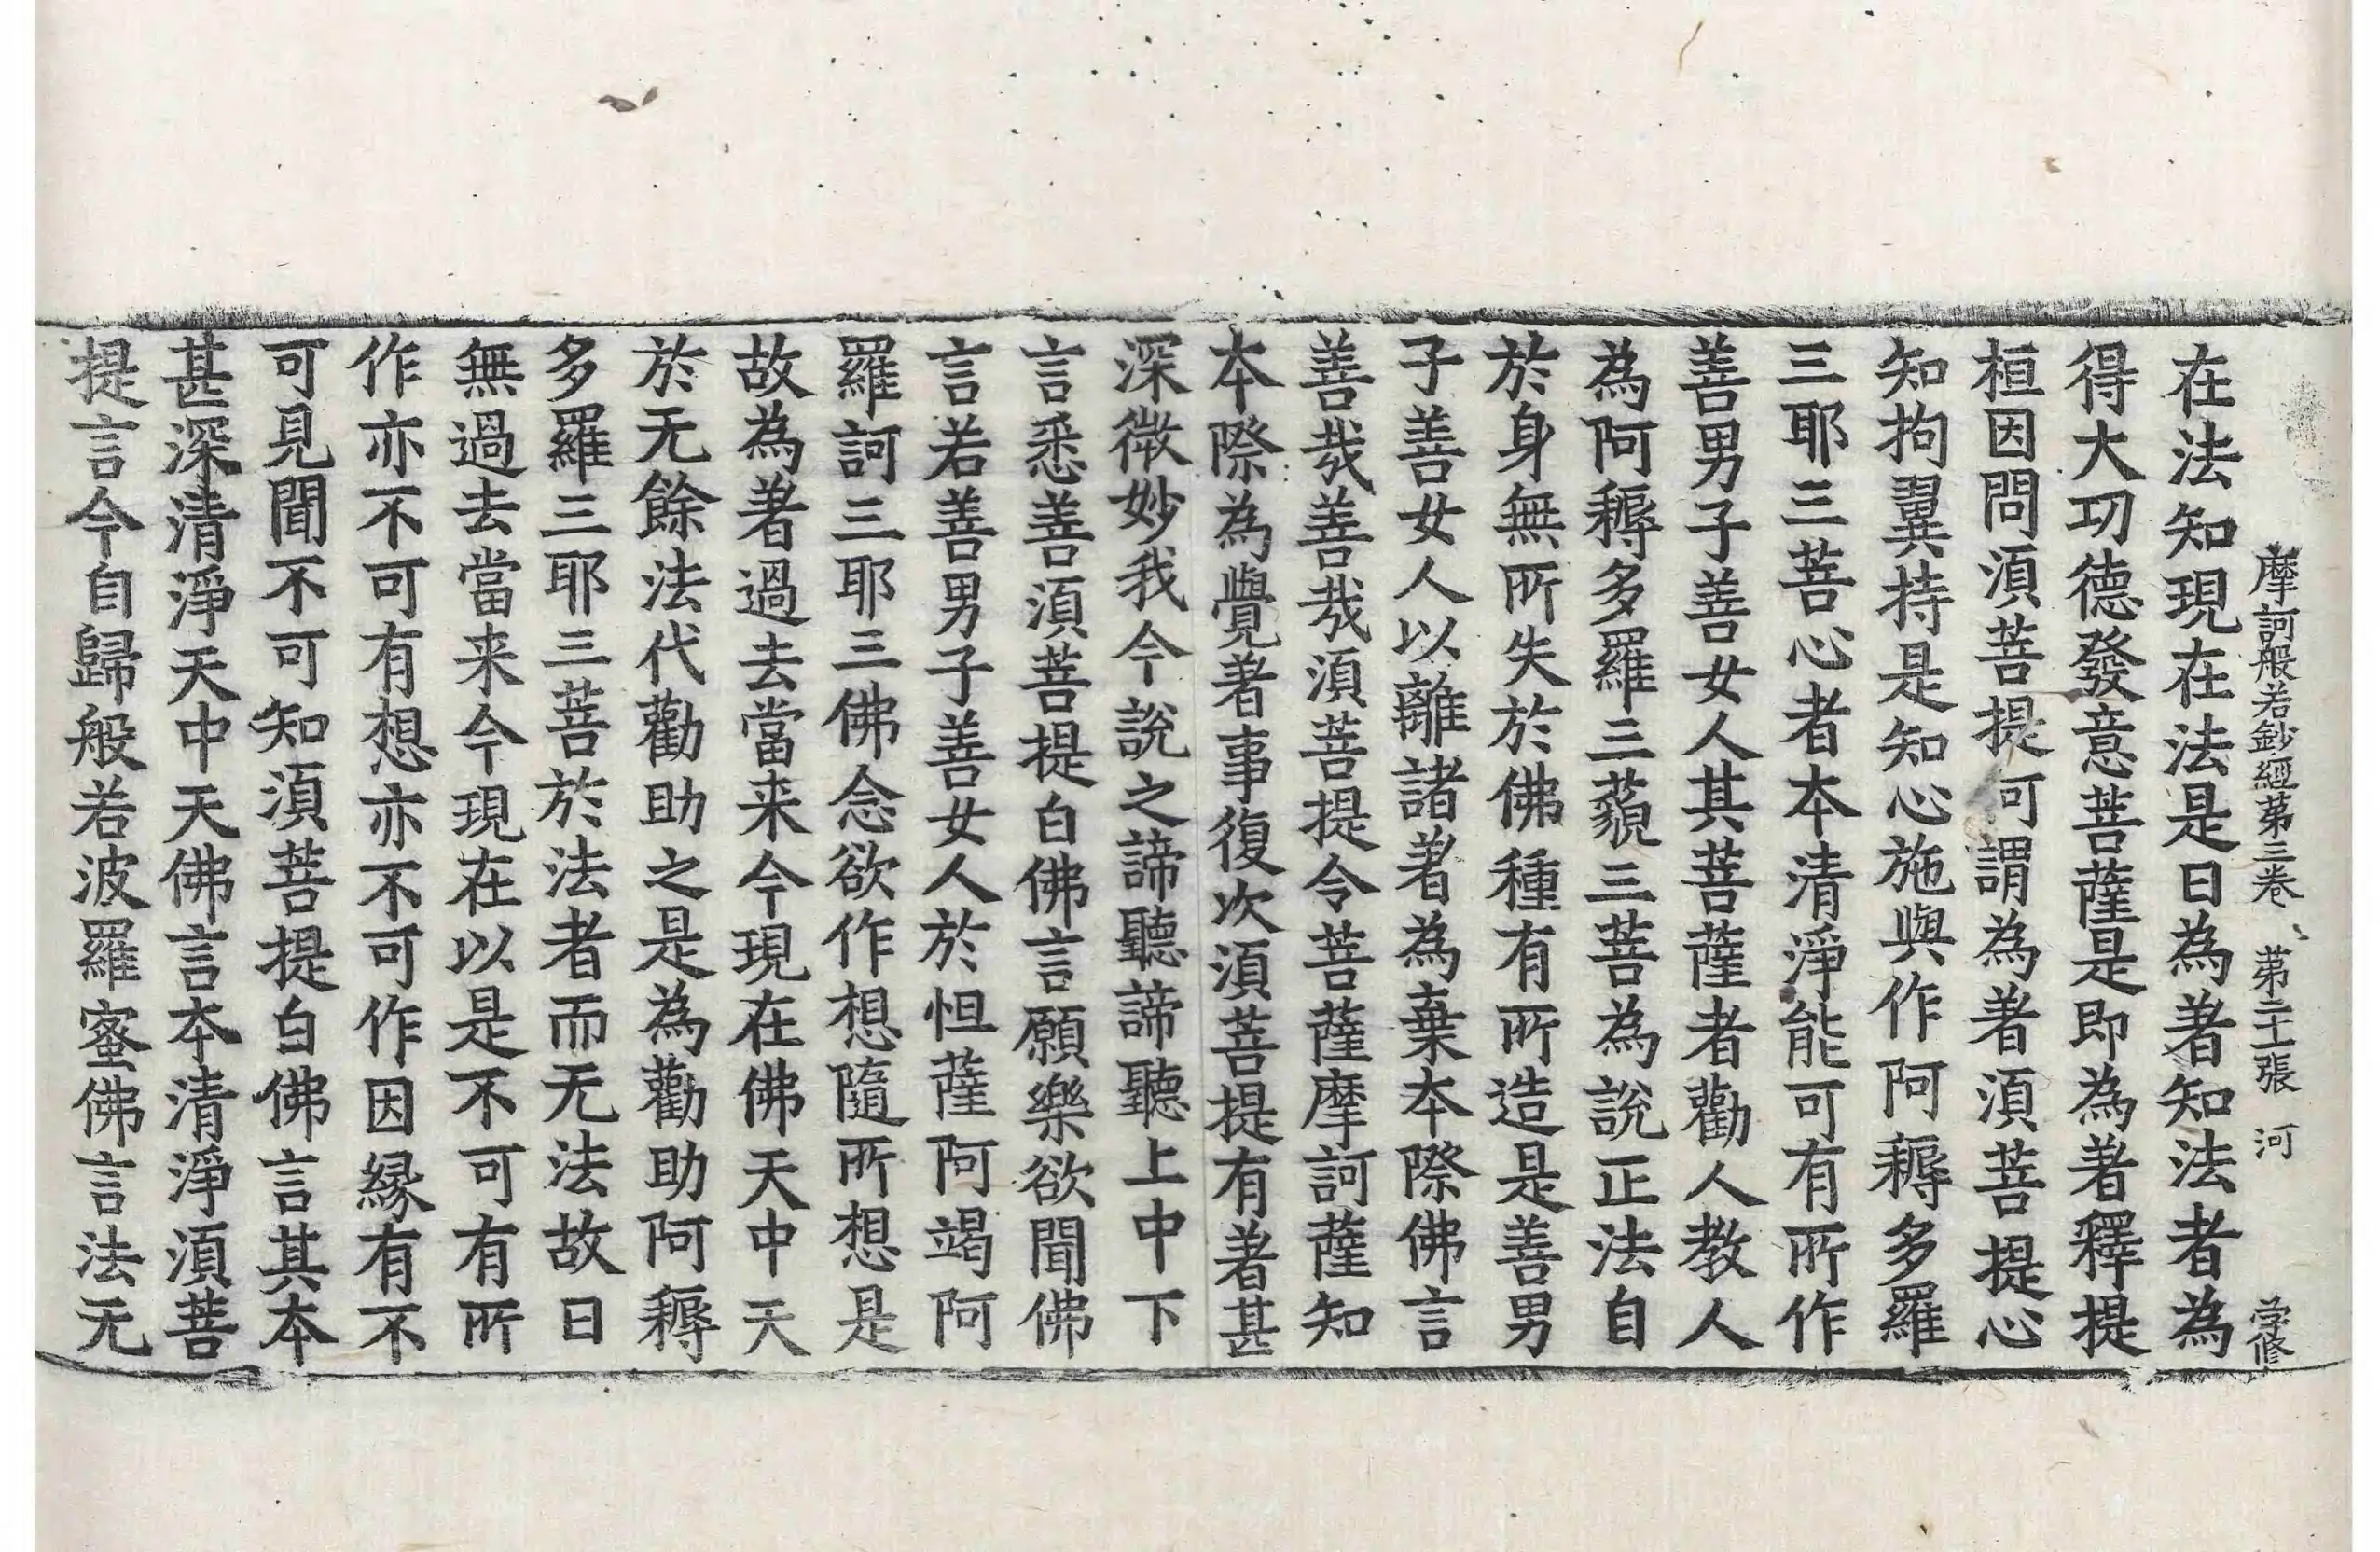 摩訶般若鈔經第三卷 第二十張 河 孚修
在法知現在法是曰為著知法者為
得大功德發意菩薩是即為著釋提
桓因問須菩提可謂為著須菩提心
知拘翼持是知心施與作阿耨多羅
三耶三菩心者本清淨能可有所作
善男子善女人其菩薩者勸人教人
為阿耨多羅三藐三菩為說正法自
於身無所失於佛種有所造是善男
子善女人以離諸著為棄本際佛言
善哉善哉須菩提令菩薩摩訶薩知
本際為覺著事復次須菩提有著甚
深微妙我今說之諦聽諦聽上中下
言悉善須菩提白佛言願樂欲聞佛
言若善男子善女人於怛薩阿竭阿
羅訶三耶三佛念欲作想隨所想是
故為著過去當来今現在佛天中天
於无餘法代勸助之是為勸助阿耨
多羅三耶三菩於法者而无法故曰
無過去當来今現在以是不可有所
作亦不可有想亦不可作因緣有不
可見聞不可知須菩提白佛言其本
甚深清淨天中天佛言本清淨須菩
提言今自歸般若波羅蜜佛言法无